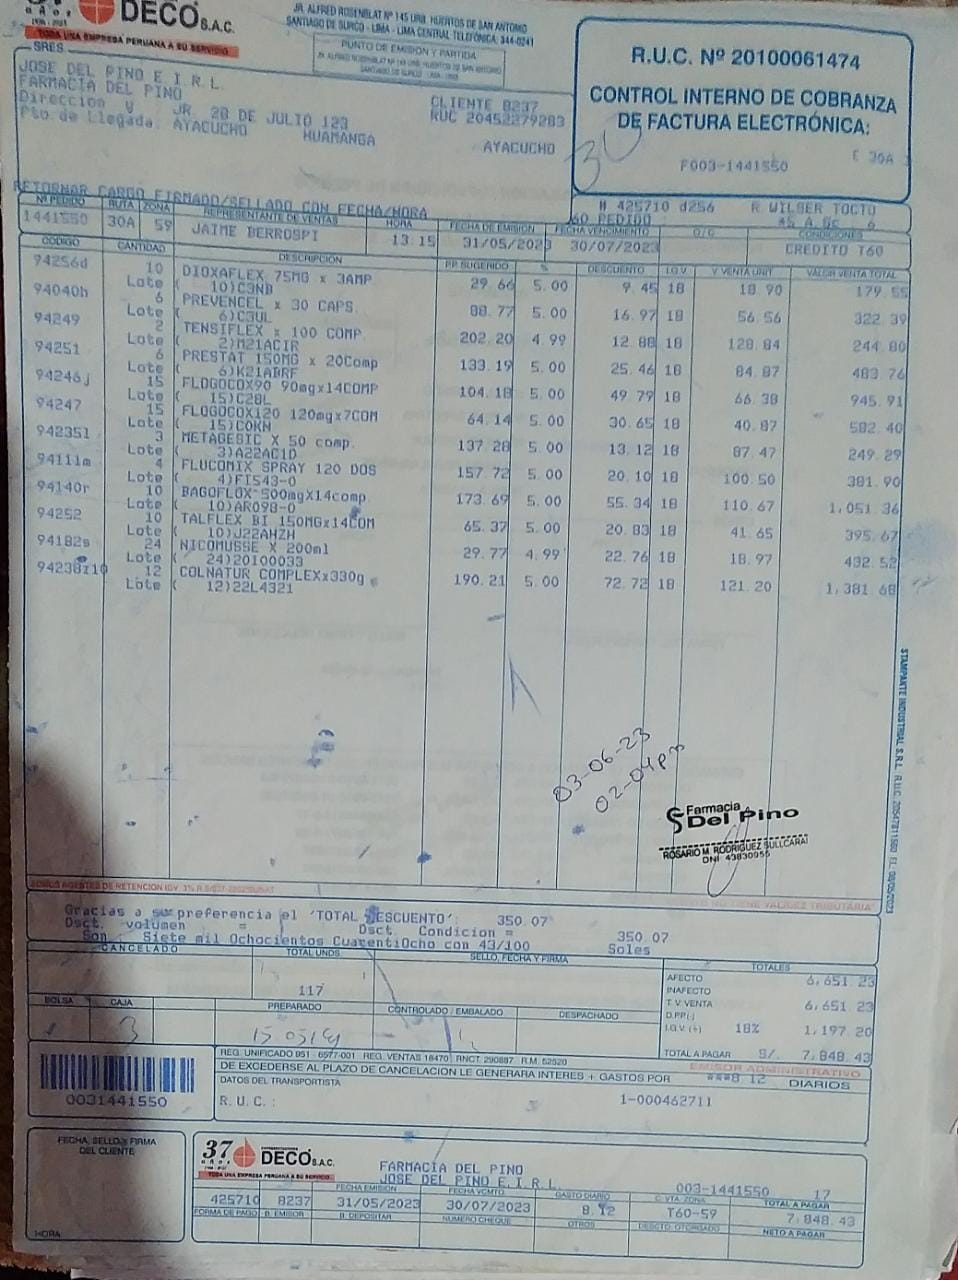 37
años
DECO S.A.C.
TODA UNA EMPRESA PERUANA A SU SERVICIO
JR. ALFRED ROSENBLAT Nº 145 URB. HUERTOS DE SAN ANTONIO
SANTIAGO DE SURCO - LIMA - LIMA CENTRAL TELEFÓNICA: 344-0241
PUNTO DE EMISIÓN Y PARTIDA
JR. ALFRED ROSENBLAT Nº 145 URB. HUERTOS DE SAN ANTONIO
SANTIAGO DE SURCO - LIMA - LIMA
R.U.C. Nº 20100061474
CONTROL INTERNO DE COBRANZA
DE FACTURA ELECTRÓNICA:
F003-1441550
E 30A
30
SRES.
JOSE DEL PINO E.I.R.L.
FARMACIA DEL PINO
Direccion y JR. 28 DE JULIO 123
Pto.de Llegada: AYACUCHO HUAMANGA AYACUCHO
CLIENTE 8237
RUC 20452279283
RETORNAR CARGO FIRMADO/SELLADO CON FECHA/HORA
# 425710 d256 R. WILBER TOCTO
60 PEDIDO
Nº PEDIDO RUTA ZONA REPRESENTANTE DE VENTAS HORA FECHA DE EMISION FECHA VENCIMIENTO O/C CONDICIONES
1441550 30A 59 JAIME BERROSPI 13.15 31/05/2023 30/07/2023 CREDITO T60
CODIGO CANTIDAD DESCRIPCION P.P. SUGERIDO % DESCUENTO I.G.V. V. VENTA UNIT. VALOR VENTA TOTAL
94256d 10 DIOXAFLEX 75MG x 3AMP 29.66 5.00 9.45 18 18.90 179.55
Lote ( 10)C3NB
94040h 6 PREVENCEL x 30 CAPS. 88.77 5.00 16.97 18 56.56 322.39
Lote ( 6)C3UL
94249 2 TENSIFLEX x 100 COMP. 202.20 4.99 12.88 18 128.84 244.80
Lote ( 2)M21ACIR
94251 6 PRESTAT 150MG x 20Comp 133.19 5.00 25.46 18 84.87 483.76
Lote ( 6)K21ABRF
94246j 15 FLOGOCOX90 90mgx14COMP 104.18 5.00 49.79 18 66.38 945.91
Lote ( 15)C28L
94247 15 FLOGOCOX120 120mgx7COM 64.14 5.00 30.65 18 40.87 582.40
Lote ( 15)C0KN
942351 3 METAGESIC X 50 comp. 137.28 5.00 13.12 18 87.47 249.29
Lote ( 3)A22AC1D
94111m 4 FLUCOMIX SPRAY 120 DOS 157.72 5.00 20.10 18 100.50 381.90
Lote ( 4)FI543-0
94140r 10 BAGOFLOX 500mgX14comp 173.69 5.00 55.34 18 110.67 1,051.36
Lote ( 10)AR098-0
94252 10 TALFLEX BI 150MGx14COM 65.37 5.00 20.83 18 41.65 395.67
Lote ( 10)J22AHZH
94182s 24 NICOMUSSE X 200ml 29.77 4.99 22.76 18 18.97 432.52
Lote ( 24)20100033
94238z10 12 COLNATUR COMPLEXx330g 190.21 5.00 72.72 18 121.20 1,381.68
Lote ( 12)22L4321
03-06-23
02-04pm
Farmacia
Del Pino
ROSARIO M. RODRIGUEZ SULLCARAI
DNI 43830955
STAMPANTE INDUSTRIAL S.R.L. R.U.C. 20547811580 F.I. 08/05/2023
SOMOS AGENTES DE RETENCION IGV 3%
NO TIENE VALIDEZ TRIBUTARIA
Gracias a su preferencia el 'TOTAL DESCUENTO': 350.07
Dsct. volumen = Dsct. Condicion = 350.07
Son Siete mil Ochocientos CuarentiOcho con 43/100 Soles
CANCELADO TOTAL UNDS. SELLO, FECHA Y FIRMA TOTALES
117
AFECTO 6,651.23
INAFECTO
T. V. VENTA 6,651.23
D.P.P.(-)
I.G.V. (+) 18% 1,197.20
TOTAL A PAGAR S/. 7,848.43
BOLSA CAJA PREPARADO CONTROLADO / EMBALADO DESPACHADO
3
REG. UNIFICADO 951 - 6577-001 REG. VENTAS 18470 RNCT. 290887 R.M. 52520
EMISOR ADMINISTRATIVO
DE EXCEDERSE AL PLAZO DE CANCELACION LE GENERARA INTERES + GASTOS POR ***8.12 DIARIOS
DATOS DEL TRANSPORTISTA
R.U.C.: 1-000462711
0031441550
FECHA, SELLO & FIRMA
DEL CLIENTE
HORA
37
años
DECO S.A.C.
TODA UNA EMPRESA PERUANA A SU SERVICIO
FARMACIA DEL PINO
JOSE DEL PINO E.I.R.L. 003-1441550 17
FECHA EMISION FECHA VCMTO GASTO DIARIO C. VTA. ZONA TOTAL A PAGAR
425710 8237 31/05/2023 30/07/2023 8.12 T60-59 7,848.43
FORMA DE PAGO B. EMISOR B. DEPOSITAR NUMERO CHEQUE OTROS DESCTO. OTORGADO NETO A PAGAR